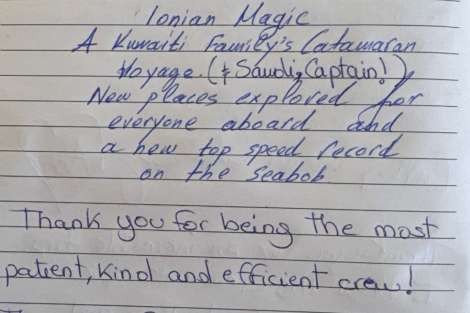 Ionian Magic
A Kuwaiti Family's Catamaran
Voyage. (& Saudi, Captain!)
New places explored for
everyone aboard and
a new top speed record
on the Seabob
Thank you for being the most
patient, Kind and efficient crew!